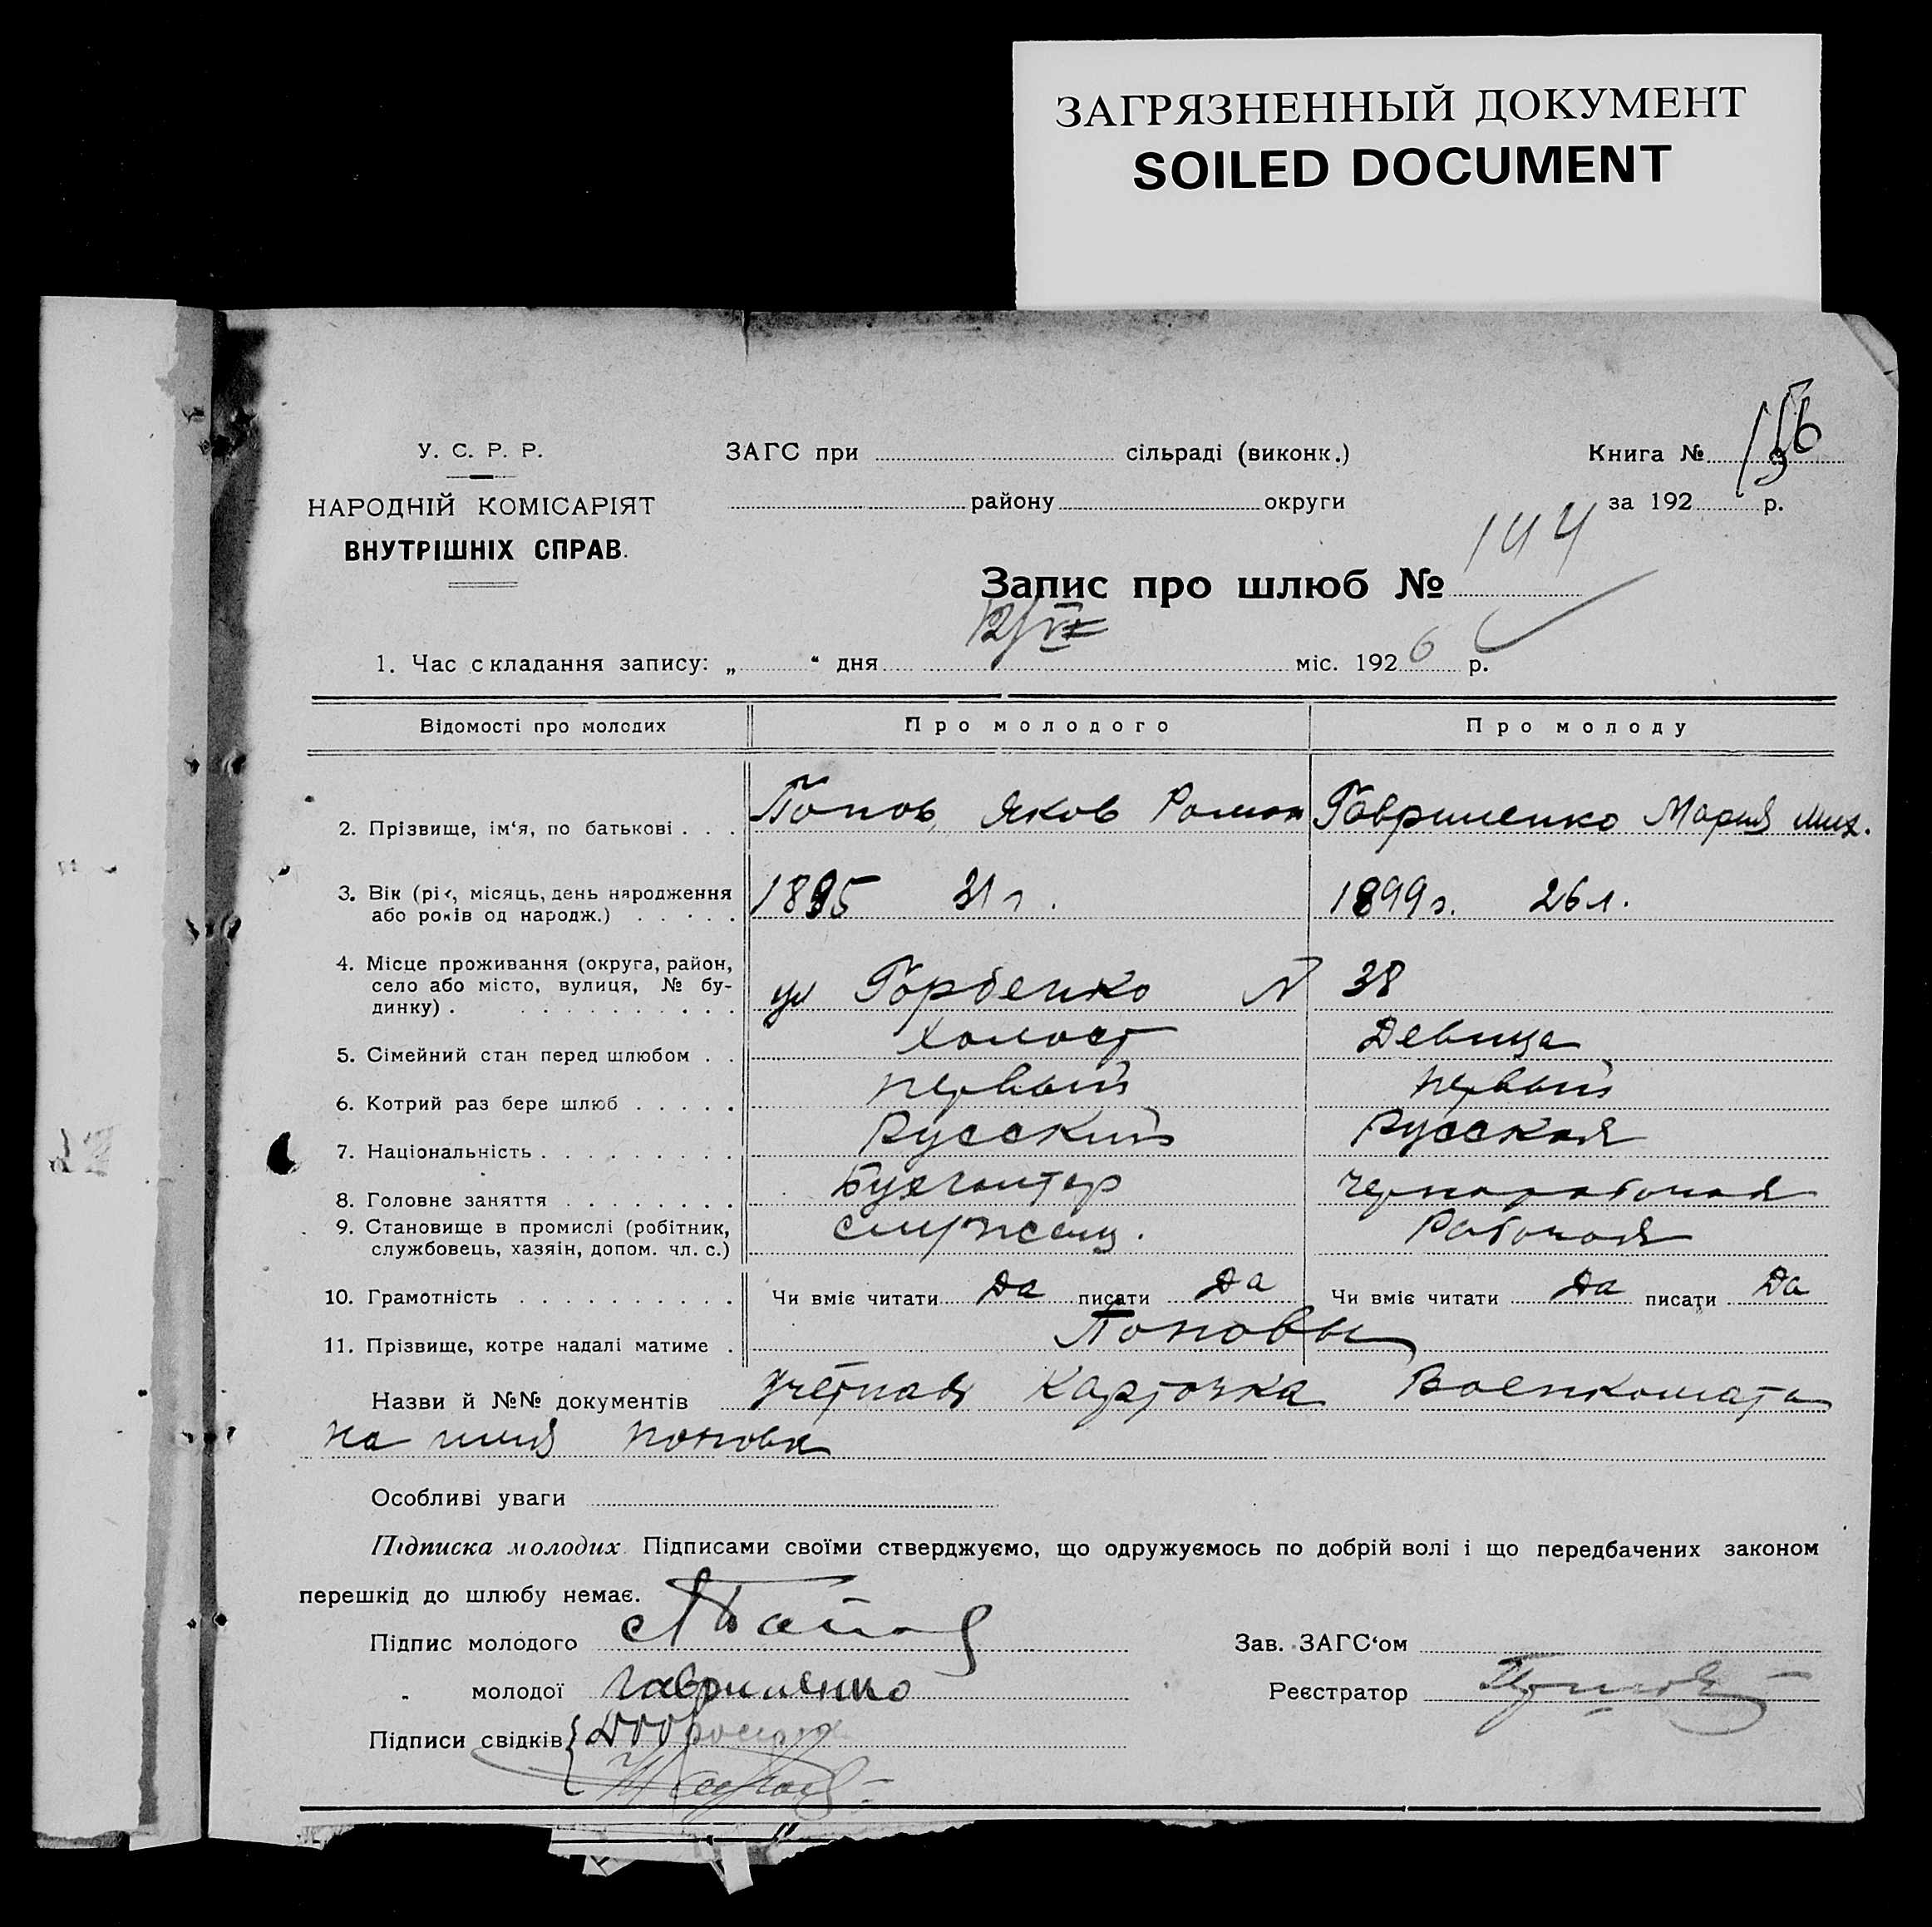 ЗАГРЯЗНЕННЫЙ ДОКУМЕНТ
SOILED DOCUMENT
У. С. Р. Р.
НАРОДНІЙ КОМІСАРІЯТ
ВНУТРІШНІХ СПРАВ.
ЗАГС при сільраді (виконк.)
району округи
Книга №
за 192 р.
Запис про шлюб № 144
1. Час складання запису: „ “ дня 12/VI міс. 1926 р.
Відомості про молодих Про молодого Про молоду
2. Прізвище, ім‘я, по батькові . . . Попов Яков Роман Гавриленко Мария Мих.
3. Вік (рік, місяць, день народження
або років од народж.) . . . . . 1895 31 г. 1899 г. 26 л.
4. Місце проживання (округа, район,
село або місто, вулиця, № бу-
динку) . . . . . . . . . . . ул Горбенко № 38
5. Сімейний стан перед шлюбом . . Холост Девица
6. Котрий раз бере шлюб . . . . . первый первый
7. Національність . . . . . . . . . Русский Русская
8. Головне заняття . . . . . . . . Бухгалтер Чернорабочая
9. Становище в промислі (робітник,
службовець, хазяін, допом. чл. с.) служащ. Рабочая
10. Грамотність . . . . . . . . . . Чи вміє читати Да писати Да Чи вміє читати Да писати Да
11. Прізвище, котре надалі матиме . Поповы
Назви й №№ документів учетная карточка Военкомата
на имя Попова
Особливі уваги
Підписка молодих. Підписами своїми стверджуємо, що одружуємось по добрій волі і що передбачених законом
перешкід до шлюбу немає.
Підпис молодого
Зав. ЗАГС‘ом
„ молодої Гавриленко
Реєстратор
Підписи свідків